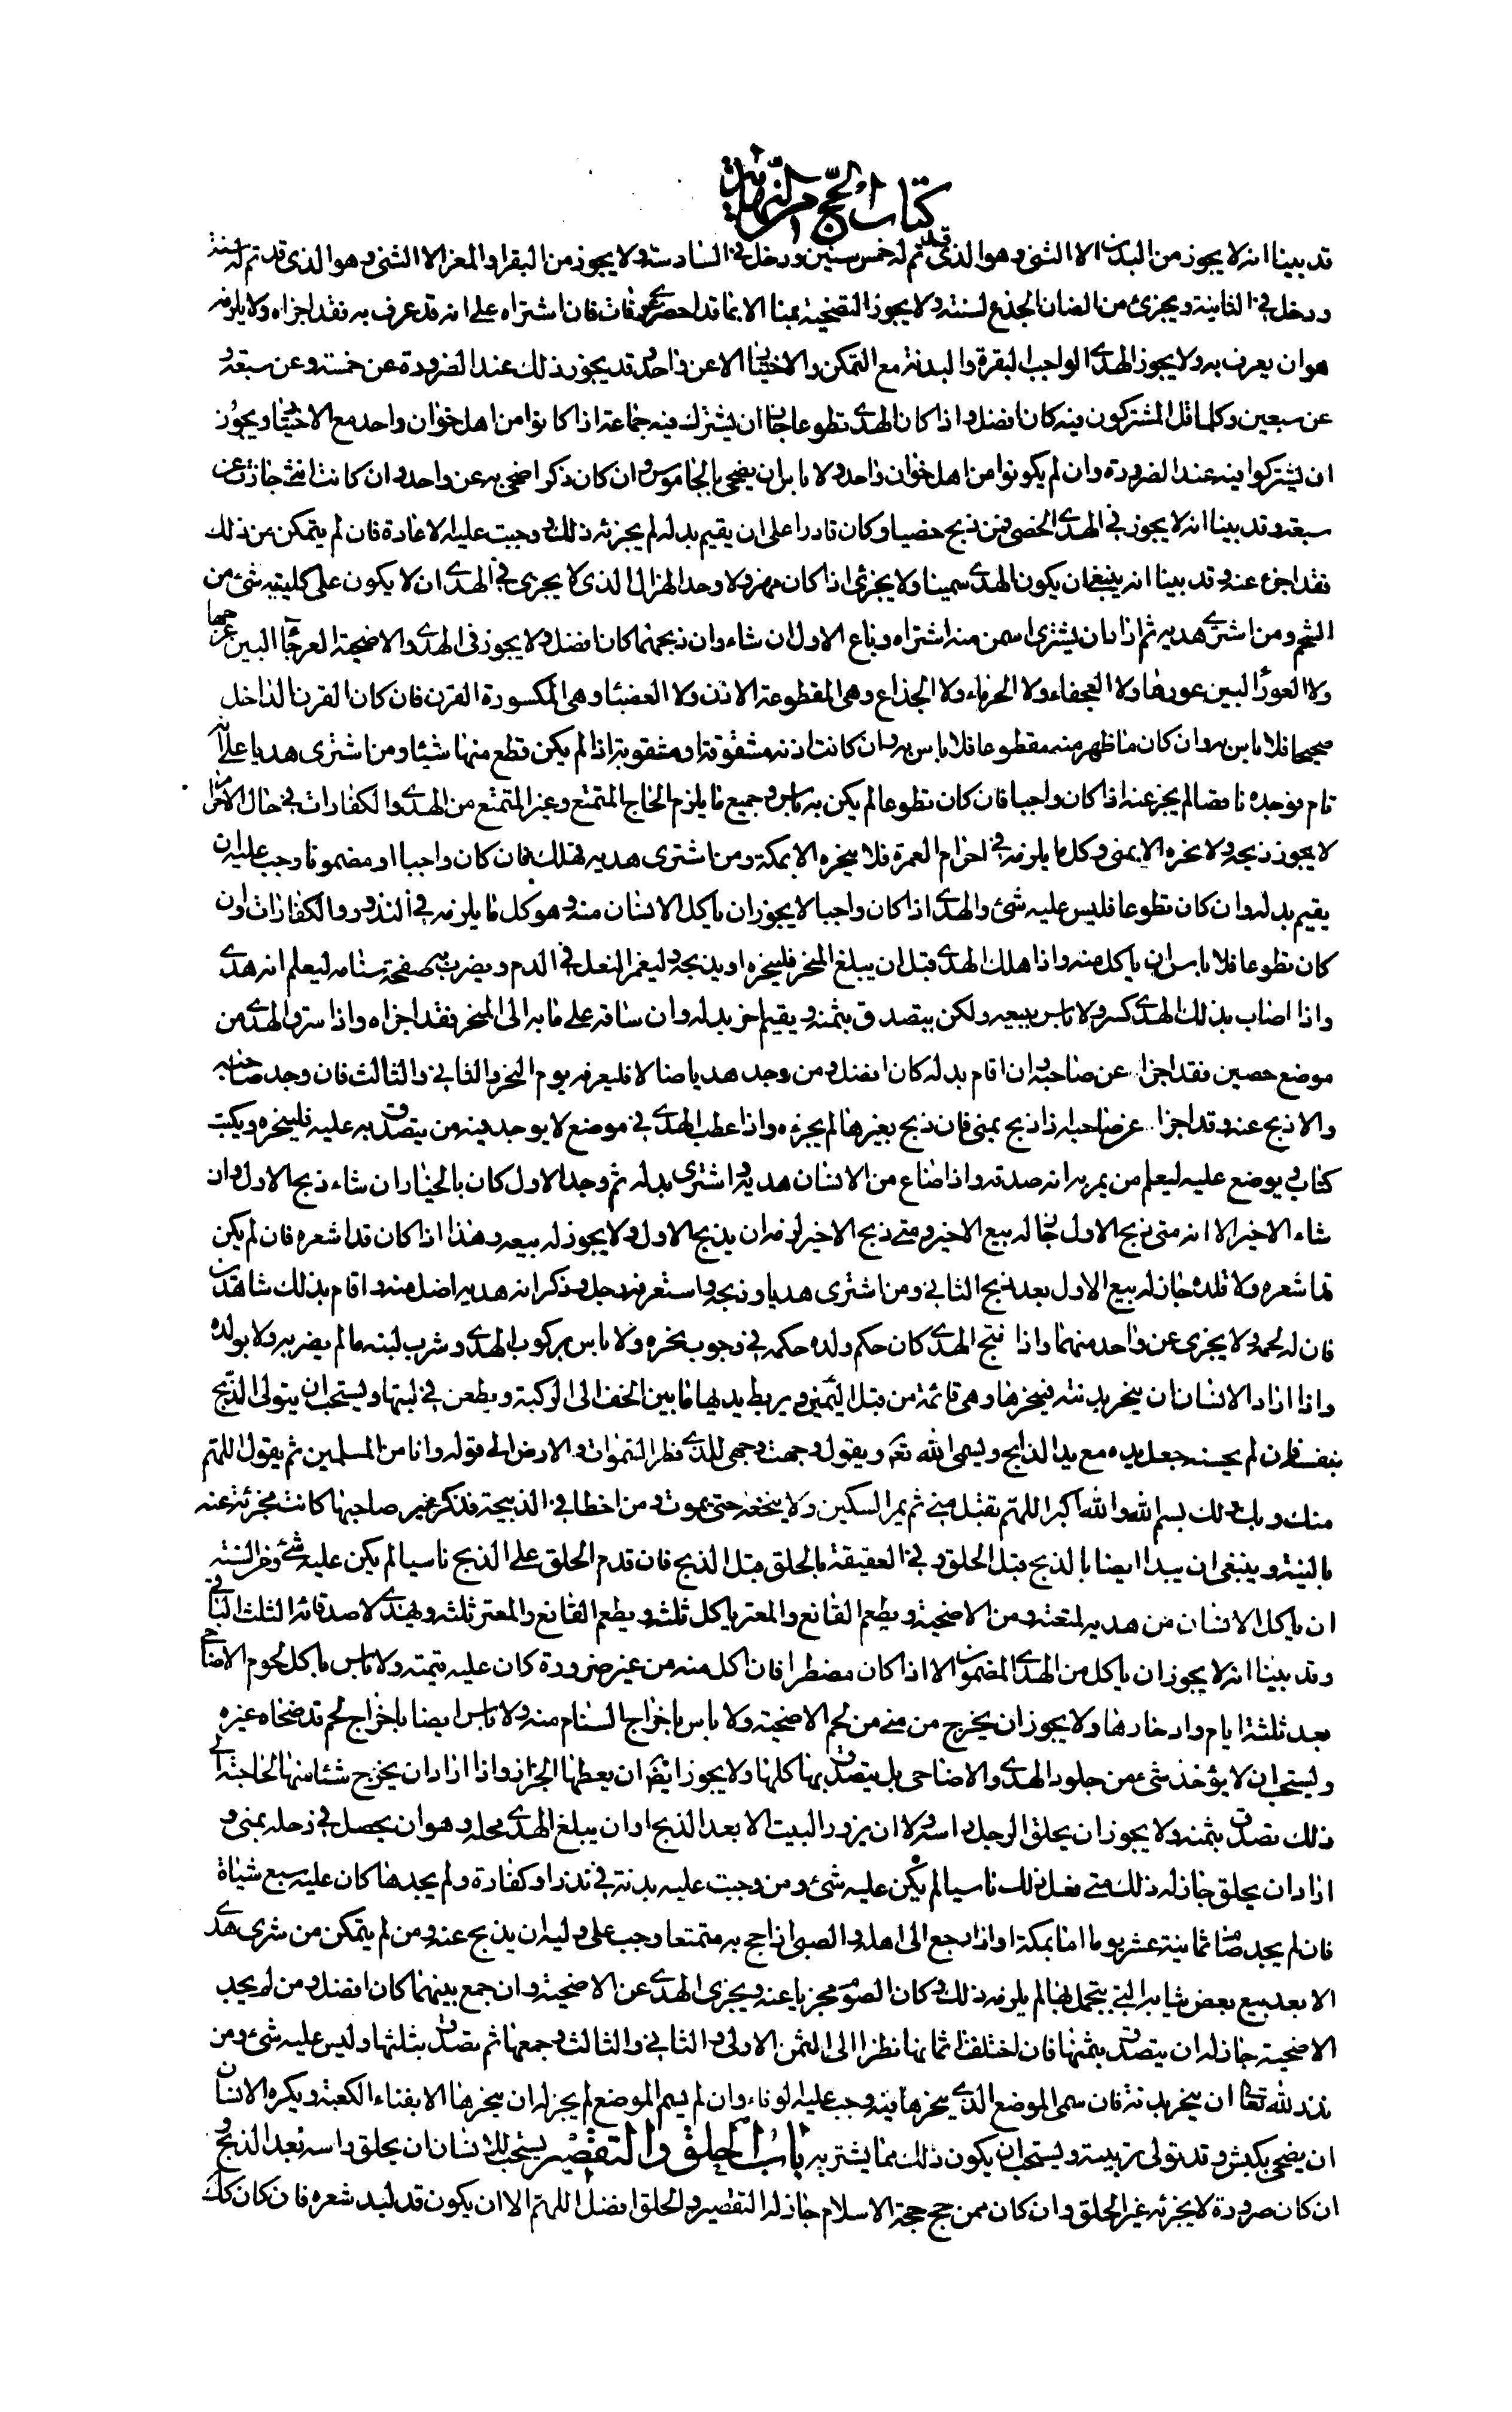 كتاب الحج من النهاية
قد بينا انه لا يجوز من البدن الا الثنى وهو الذى قد تم له خمس سنين ودخل فى السادسة ولا يجوز من البقر والمعز الا الثنى وهو الذى قد تم له سنة
ودخل فى الثانية ويجزئ من الضان الجذع لسنته ولا يجوز التضحية بمنا الا بما قد احضر عرفات فان اشتراه على انه قد عرف به فقد اجزاه ولا يلزمه
هو ان يعرف به ولا يجوز الهدى الواجب البقرة والبدنة مع التمكن والاختيار الا عن واحد وقد يجوز ذلك عند الضرورة عن خمسة وعن سبعة و
عن سبعين وكلما قل المشتركون فيه كان افضل واذا كان الهدى تطوعا جاز ان يشترك فيه جماعة اذا كانوا من اهل خوان واحد مع الاختيار ويجوز
ان يشتركوا فيه عند الضرورة وان لم يكونوا من اهل خوان واحد ولا باس ان يضحى بالجاموس وان كان ذكرا ضحى به عن واحد وان كانت انثى جازت عن
سبعة وقد بينا انه لا يجوز فى الهدى الخصى فمن ذبح خصيا وكان قادرا على ان يقيم بدله لم يجزئه ذلك ووجبت عليه الاعادة فان لم يتمكن من ذلك
فقد اجزء عنه وقد بينا انه ينبغى ان يكون الهدى سمينا ولا يجزئ اذا كان مهزولا وحد الهزال الذى لا يجزى فى الهدى ان لا يكون على كليتيه شئ من
الشحم ومن اشترى هديه ثم اراد ان يشترى اسمن منه اشتراه وباع الاول ان شاء وان ذبحهما كان افضل ولا يجوز فى الهدى والاضحية العرجاء البين عرجها
ولا العوراء البين عورها ولا العجفاء ولا الخرماء ولا الجذاع وهى المقطوعة الاذن ولا العضبا وهى المكسورة القرن فان كان القرن الداخل
صحيحا فلا باس به وان كان ما ظهر منه مقطوعا فلا باس به وان كانت اذنه مشقوقة او مثقوبة اذا لم يكن قطع منها شيئا ومن اشترى هديا على انه
تام فوجده ناقصا لم يجز عنه اذا كان واجبا فان كان تطوعا لم يكن به باس وجميع ما يلزم الحاج المتمتع وغير المتمتع من الهدى والكفارات فى حال الاحرام
لا يجوز ذبحه ولا نحره الا بمنى وكل ما يلزمه فى احرام العمرة فلا ينحره الا بمكة ومن اشترى هديه فهلك فان كان واجبا او مضمونا وجب عليه ان
يقيم بدله وان كان تطوعا فليس عليه شئ والهدى اذا كان واجبا لا يجوز ان ياكل الانسان منه وهو كل ما يلزمه فى النذور والكفارات وان
كان تطوعا فلا باس ان ياكل منه واذا هلك الهدى قبل ان يبلغ المنحر فلينحره او يذبحه وليغمر النعل فى الدم ويضرب به صفحة سنامه ليعلم انه هدى
واذا اصاب بذلك الهدى كسر ولا باس ببيعه ولكن يتصدق بثمنه ويقيم اخر بدله وان ساقه على ما به الى المنحر فقد اجزاه واذا سرق الهدى من
موضع حصين فقد اجزا عن صاحبه وان اقام بدله كان افضل ومن وجد هديا ضالا فليعرفه يوم النحر والثانى والثالث فان وجد صاحبه
والا ذبح عنه وقد اجزا عن صاحبه اذا ذبح بمنى فان ذبح بغيرها لم يجزه واذا عطب الهدى فى موضع لا يوجد فيه من يتصدق به عليه فلينحره ويكتب
كتابا يوضع عليه ليعلم من يمر به انه صدقة واذا ضاع من الانسان هديه واشترى بدله ثم وجد الاول كان بالخيار ان شاء ذبح الاول وان
شاء الاخير الا انه متى ذبح الاول جاز له بيع الاخير ومتى ذبح الاخير لزمه ان يذبح الاول ولا يجوز له بيعه وهذا اذا كان قد اشعره فان لم يكن
قد اشعره ولا قلده جاز له بيع الاول بعد ذبح الثانى ومن اشترى هديا وذبحه واستعرفه رجل وذكر انه هديه اضل منه واقام بذلك شاهدين
فان له لحمه ولا يجزى عن واحد منهما واذا نتج الهدى كان حكم ولده حكمه فى وجوب نحره ولا باس بركوب الهدى وشرب لبنه ما لم يضر به ولا بولده
واذا اراد الانسان ان ينحر بدنته فينحرها وهى قائمة من قبل اليمين ويربط يديها ما بين الخف الى الركبة ويطعن فى لبتها ويستحب ان يتولى الذبح
بنفسه فان لم يحسنه جعل يده مع يد الذابح ويسمى الله تع ويقول وجهت وجهى للذى فطر السموات والارض الى قوله وانا من المسلمين ثم يقول اللهم
منك ولك بسم الله والله اكبر اللهم تقبل منى ثم يمر السكين ولا ينخعه حتى يموت ومن اخطا فى الذبيحة فذكر غير صاحبها كانت مجزئة عنه
بالنية وينبغى ان يبدا ايضا بالذبح قبل الحلق وفى العقيقة بالحلق قبل الذبح فان قدم الحلق على الذبح ناسيا لم يكن عليه شئ ومن السنة
ان ياكل الانسان من هديه لمتعته ومن الاضحية ويطعم القانع والمعتر ياكل ثلثه ويطعم القانع والمعتر ثلثه ويهدى لاصدقائه الثلث الباقى
وقد بينا انه لا يجوز ان ياكل من الهدى المضمون الا اذا كان مضطرا فان اكل منه من غير ضرورة كان عليه قيمته ولا باس باكل لحوم الاضاحى
بعد ثلثة ايام وادخارها ولا يجوز ان يخرج من منى من لحم الاضحية ولا باس باخراج السنام منه ولا باس ايضا باخراج لحم قد ضحاه غيره
ويستحب ان لا يؤخذ شئ من جلود الهدى والاضاحى بل يتصدق بها كلها ولا يجوز ايضا ان يعطها الجزار واذا اراد ان يخرج شئا منها لحاجته الى
ذلك تصدق بثمنه ولا يجوز ان يحلق الرجل راسه ولا ان يزور البيت الا بعد الذبح او ان يبلغ الهدى محله وهو ان يحصل فى رحله بمنى و
اذا اراد ان يحلق جاز له ذلك متى فعل ذلك ناسيا لم يكن عليه شئ ومن وجبت عليه بدنة فى نذر او كفارة ولم يجدها كان عليه سبع شياة
فان لم يجد صام ثمانية عشر يوما اما بمكة او اذا رجع الى اهله والصبى اذا حج به متمتعا وجب على وليه ان يذبح عنه ومن لم يتمكن من شرى هدى
الا بعد بيع بعض ثيابه التى يتجمل بها لم يلزمه ذلك وكان الصوم مجزيا عنه ويجزى الهدى عن الاضحية وان جمع بينهما كان افضل ومن لم يجد
الاضحية جاز له ان يتصدق بثمنها فان اختلفت اثمانها نظر الى الثمن الاول والثانى والثالث وجمعها ثم تصدق بثلثها وليس عليه شئ ومن
نذر لله تعالى ان ينحر بدنة فان سمى الموضع الذى ينحرها فيه وجب عليه الوفاء وان لم يسم الموضع لم يجز له ان ينحرها الا بفناء الكعبة ويكره الانسان
ان يضحى بكبش وقد تولى تربيته ويستحب ان يكون ذلك مما يشتريه باب الحلق والتقصير يستحب للانسان ان يحلق راسه بعد الذبح و
ان كان صرورة لا يجزئه غير الحلق وان كان ممن حج حجة الاسلام جاز له التقصير والحلق افضل اللهم الا ان يكون قد لبد شعره فان كان كك